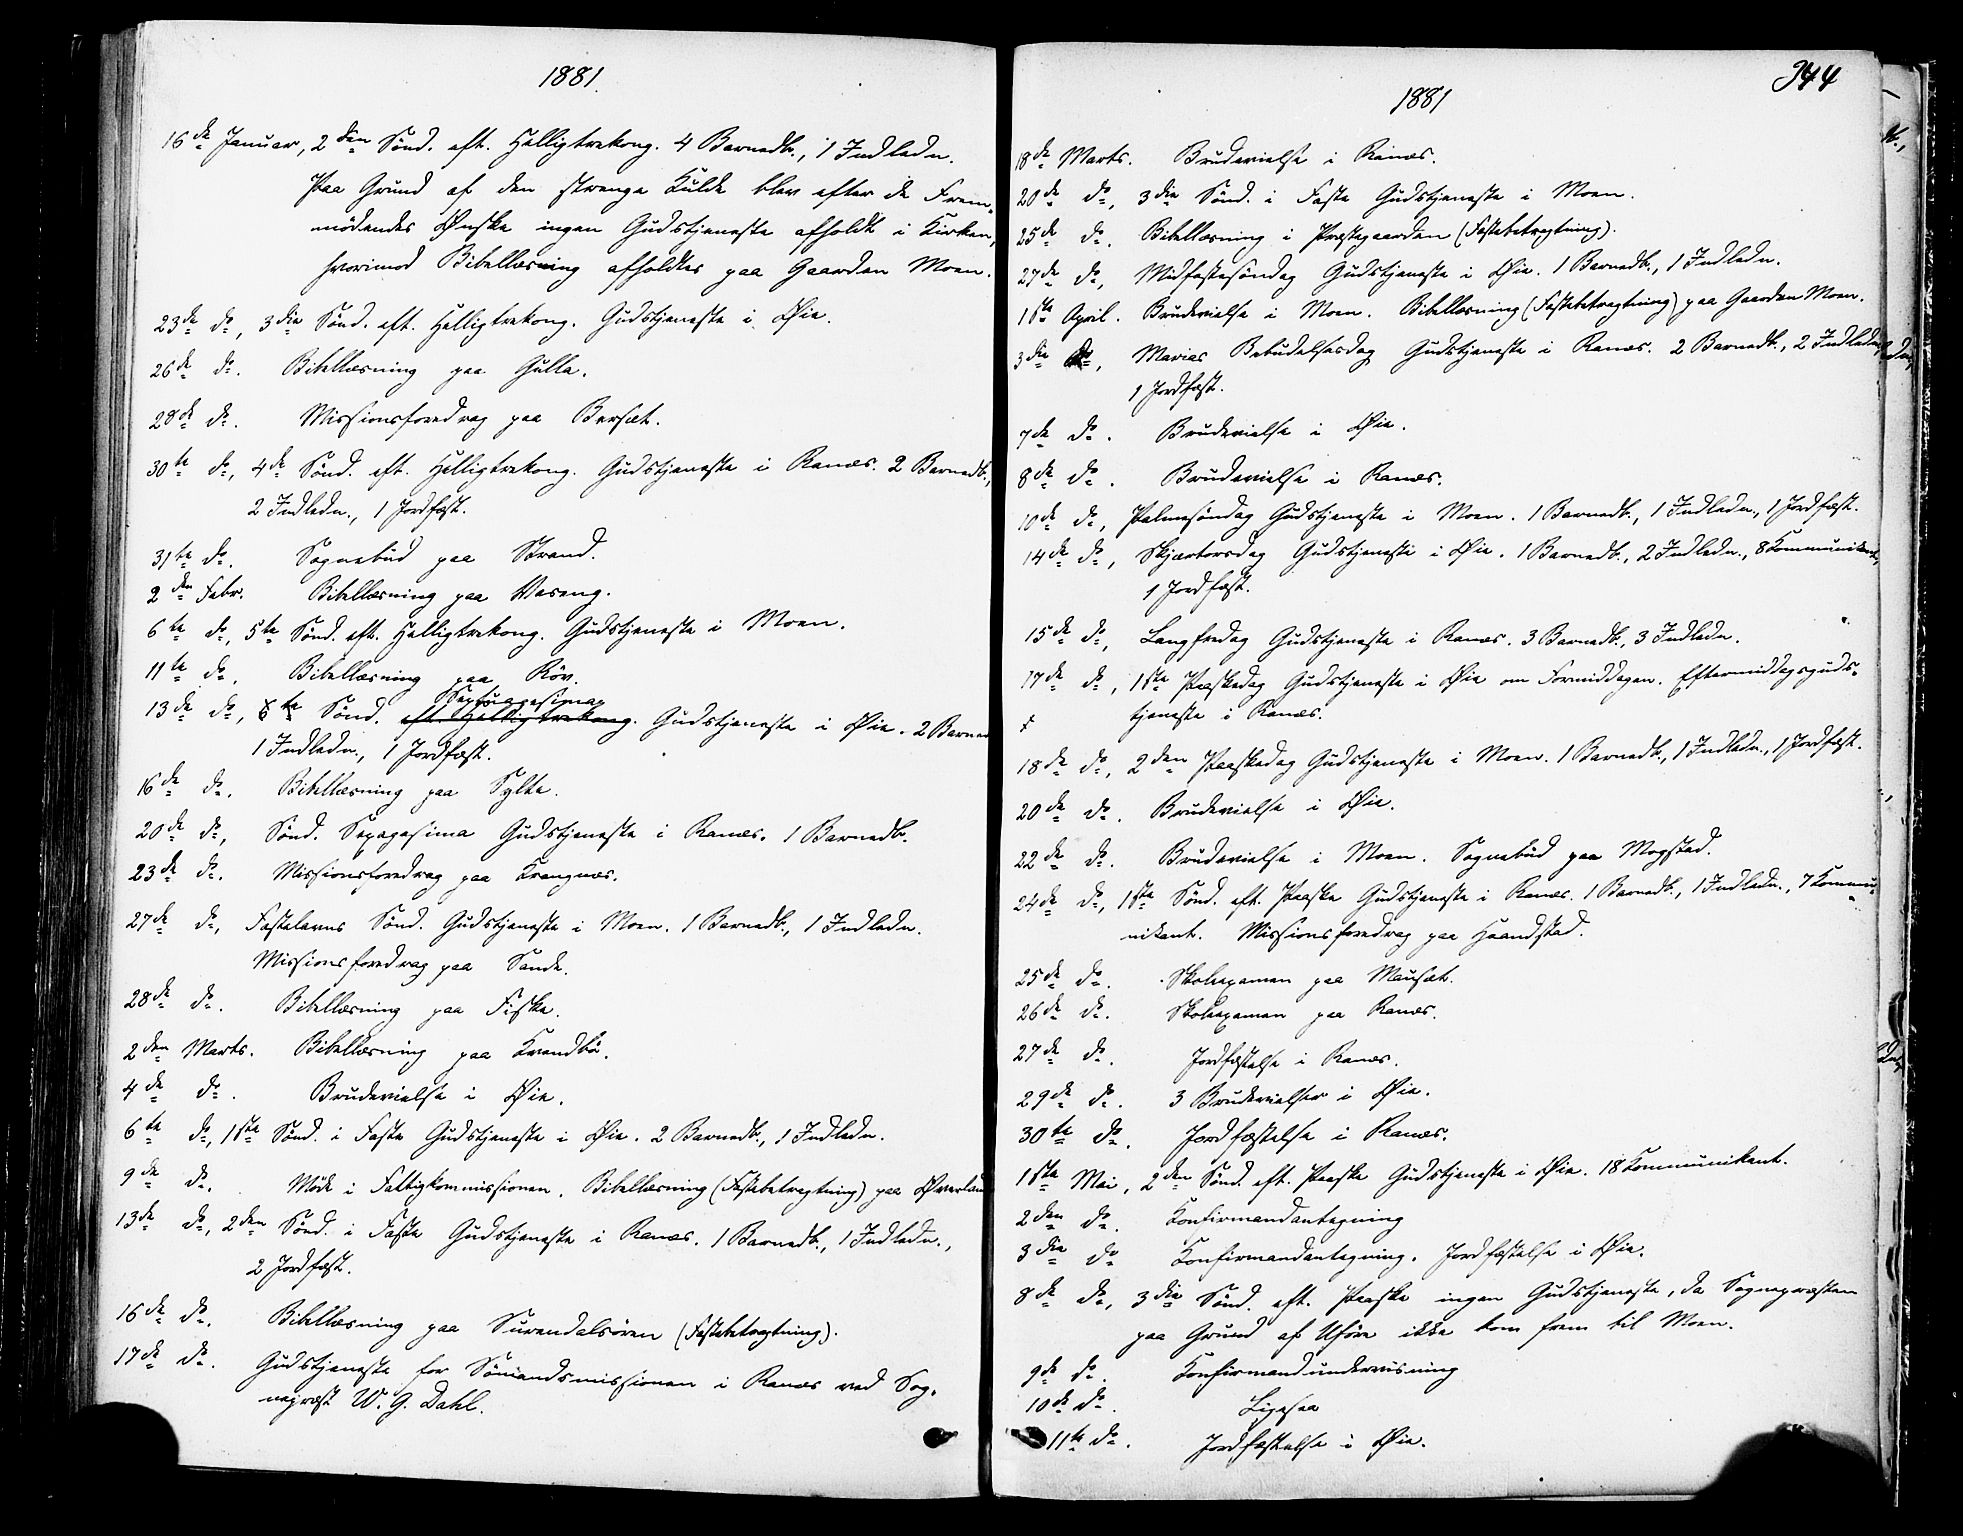 1881.
16de Januar, 2den Sönd. eft. Helligtrekong. 4 Barnedb., 1 Indledn.
Paa Grund af den strenge Kulde blev efter de Frem-
mödendes Ønske ingen Gudstjeneste afholdt i Kirken,
hvorimod Bibellæsning afholdtes paa Gaarden Moen.
23de do, 3die Sönd. eft. Helligtrekong. Gudstjeneste i Øie.
26de do. Bibellæsning paa Gulla.
28de do. Missionsforedrag paa Bersæt.
30te do, 4de Sönd. eft. Helligtrekong. Gudstjeneste i Ranæs. 2 Barnedb.,
2 Indledn., 1 Jordfæst.
31te do. Sognebud paa Strand.
2den Febr. Bibellæsning paa Vaseng.
6te do, 5te Sönd. eft. Helligtrekong. Gudstjeneste i Moen.
11te do. Bibellæsning paa Röv.
Septuagesima
13de do, 6te Sönd. eft. Helligtrekong. Gudstjeneste i Øie. 2 Barned
1 Indledn., 1 Jordfæst.
16de do. Bibellæsning paa Sylte.
20de do, Sönd. Sexagesima Gudstjeneste i Ranæs. 1 Barnedb.
23de do. Missionsforedrag paa Krangnæs.
27de do, Fastelavns Sönd. Gudstjeneste i Moen. 1 Barnedb., 1 Indledn.
Missionsforedrag paa Sande.
28de do. Bibellæsning paa Fiske.
2den Marts. Bibellæsning paa Kvandbö.
4de do. Brudevielse i Øie.
6te do, 1ste Sönd. i Faste Gudstjeneste i Øie. 2 Barnedb., 1 Indledn.
9de do. Möde i Fattigkommissionen. Bibellæsning (Fastebetragtning) paa
13de do, 2den Sönd. i Faste Gudstjeneste i Ranæs. 1 Barnedb., 1 Indledn.,
2 Jordfæst.
16de do. Bibellæsning paa Surendalsören (Fastebetragtning).
17de do. Gudstjeneste for Sömandsmissionen i Ranæs ved Sog-
nepræst W. G. Dahl.
344
1881
18de Marts. Brudevielse i Ranæs.
20de do, 3die Sönd. i Faste Gudstjeneste i Moen.
25de do. Bibellæsning i Præstegaarden (Fastebetragtning).
27de do, Midfastesöndag Gudstjeneste i Øie. 1 Barnedb., 1 Indledn.
1ste April. Brudevielse i Moen. Bibellæsning (Fastebetragtning) paa Gaarden Moen.
3die do, Marias Bebudelsesdag Gudstjeneste i Ranæs. 2 Barnedb., 2 Indledn.,
1 Jordfæst.
7de do. Brudevielse i Øie.
8de do. Brudevielse i Ranæs.
10de do, Palmesöndag Gudstjeneste i Moen. 1 Barnedb., 1 Indledn., 1 Jordfæst.
14de do, Skjærtorsdag Gudstjeneste i Øie. 1 Barnedb., 2 Indledn., 8 Kommunikant,
1 Jordfæst.
15de do, Langfredag Gudstjeneste i Ranæs. 3 Barnedb., 3 Indledn.
17de do, 1ste Paaskedag Gudstjeneste i Øie om Formiddagen. Eftermiddagsguds-
tjeneste i Ranæs.
18de do, 2den Paaskedag Gudstjeneste i Moen. 1 Barnedb., 1 Indledn., 1 Jordfæst.
20de do. Brudevielse i Øie.
22de do. Brudevielse i Moen. Sognebud paa Mogstad.
24de do, 1ste Sönd. eft. Paaske Gudstjeneste i Ranæs. 1 Barnedb., 1 Indledn., 7 Kommu-
nikant. Missionsforedrag paa Haandstad.
25de do. Skoleexamen paa Mausæt.
26de do. Skoleexamen paa Ranæs.
27de do. Jordfæstelse i Ranæs.
29de do. 3 Brudevielser i Øie.
30te do. Jordfæstelse i Ranæs.
1ste Mai, 2den Sönd. eft. Paaske Gudstjeneste i Øie. 18 Kommunikant.
2den do. Konfirmandantegning
3die do Konfirmandantegning. Jordfæstelse i Øie.
8de do, 3die Sönd. eft. Paaske ingen Gudstjeneste, da Sognepræsten
paa Grund af Uföre ikke kom frem til Moen.
9de do. Konfirmandundervisning
10de do. Ligesaa
11te do. Jordfæstelse i Øie.